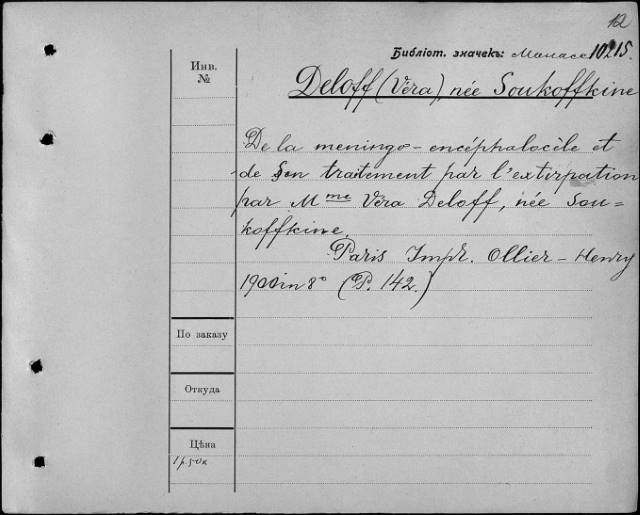 12
Библіот. значекъ: Манасс 10215.
Инв.
№
Deloff (Vèra), née Soukoffkine
De la meningo-encéphalocèle et
de son traitement par l'extirpation
par Mme Vèra Deloff, née Sou=
koffkine.
Paris Impr. Ollier-Henry
1900 in 8° (P. 142.)
По заказу
Откуда
Цѣна
1 р. 50 к